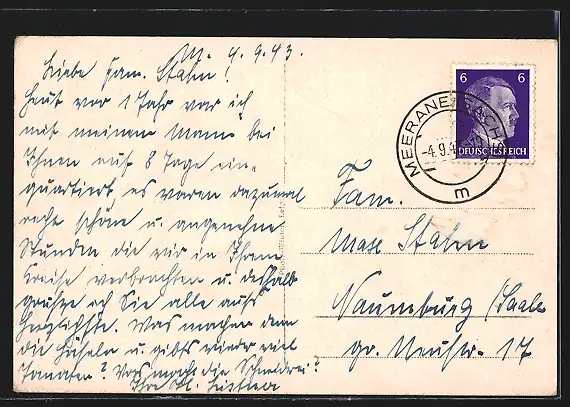 M. 4.9.43.
Liebe Fam. Stahn!
Heut vor 1 Jahr war ich
mit meinem Mann bei
Ihnen auf 8 Tage ein-
quartiert, es waren dazumal
recht schöne u. angenehme
Stunden die wir in Ihrem
Kreise verbrachten u. deshalb
grüße ich Sie alle aufs
herzlichste. Was machen denn
die Häseln u. gibts wieder viel
Tomaten? Was macht die Schneiderei?
Ihre
6 6
DEUTSCHES REICH
MEERANE (SACHS)
-4.9.4
m
Fam.
Max Stahn
Naumburg/Saale
gr. Neustr. 17